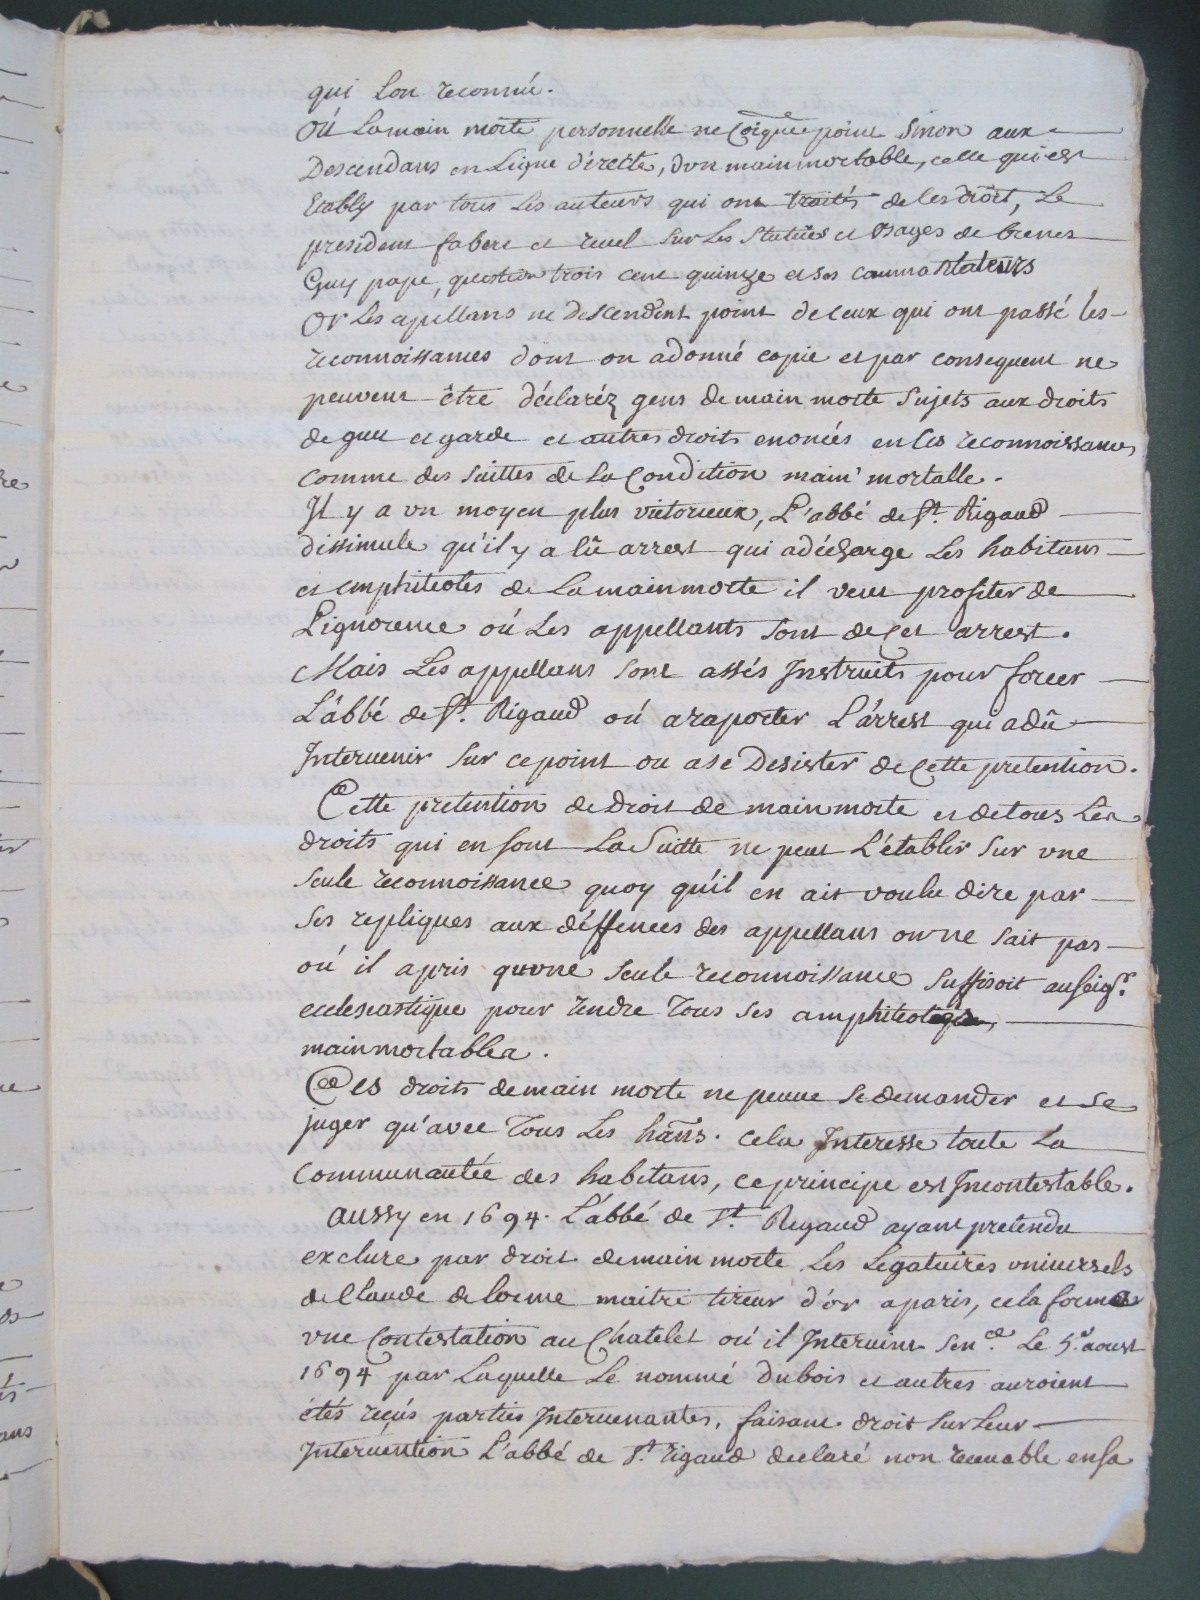 qui Lon reconnû.
Où Lamain morte personnelle ne point sinon aux
Descendans en Ligne directte, dun mainmortable, celle qui est
Etably par tous Les auteurs qui ont traités de ces droit, Le
president fabert et revel sur Les Statuës et Usages de bresses
Guy pape, question trois cent quinze et ses commantateurs
Or Les apellans ne descendent point de ceux qui ont passé les
reconnoissances dont on adonné copie et par consequent ne
peuvent être déclaréz gens de main morte Sujets aux droits
de guet et garde et autres droits enoncés en ces reconnoissances
comme des suittes de La Condition main mortalle.
Il y a un moyen plus victorieux, L'abbé de St. Rigaud
dissimule qu'il y a eû arrest qui adécharge Les habitans
et emphiteotes de La mainmorte il veut profiter de
L'ignorence où Les appellants sont de cet arrest.
Mais Les appellans sont assés Instruits pour forcer
L'abbé de St. Rigaud où araporter L'arrest qui adû
Intervenir sur ce point ou ase Desister de Cette pretention.
Cette pretention de droit de mainmorte et detous Les
droits qui en sont La Suitte ne peut L'établir sur une
seule reconnoissance quoy qu'il en ait voulu dire par
ses repliques aux déffences des appellans on ne sait pas
où il apris qu'une seule reconnoissance suffisoit auseigr.
ecclesiastique pour rendre Tous ses amphiteotes
mainmortables.
Ces droits demain morte ne peuve se demander et se
juger qu'avec Tous Les hans. cela Interesse toute La
Communautée des habitans, ce principe est Incontestable.
Aussy en 1694. L'abbé de St. Rigaud ayant pretendu
exclure par droit demain morte Les Legatuires universels
de Claude delorme maitre tireur d'or aparis, cela forma
une Contestation au Chatelet où il Intervint sence. Le 5e aoust
1694 par Laquelle Le nommé Dubois et autres auroient
étés reçus parties Intervenantes, faisant droit sur Leur
Intervention L'abbé de St. Rigaud declaré non recevable ensa